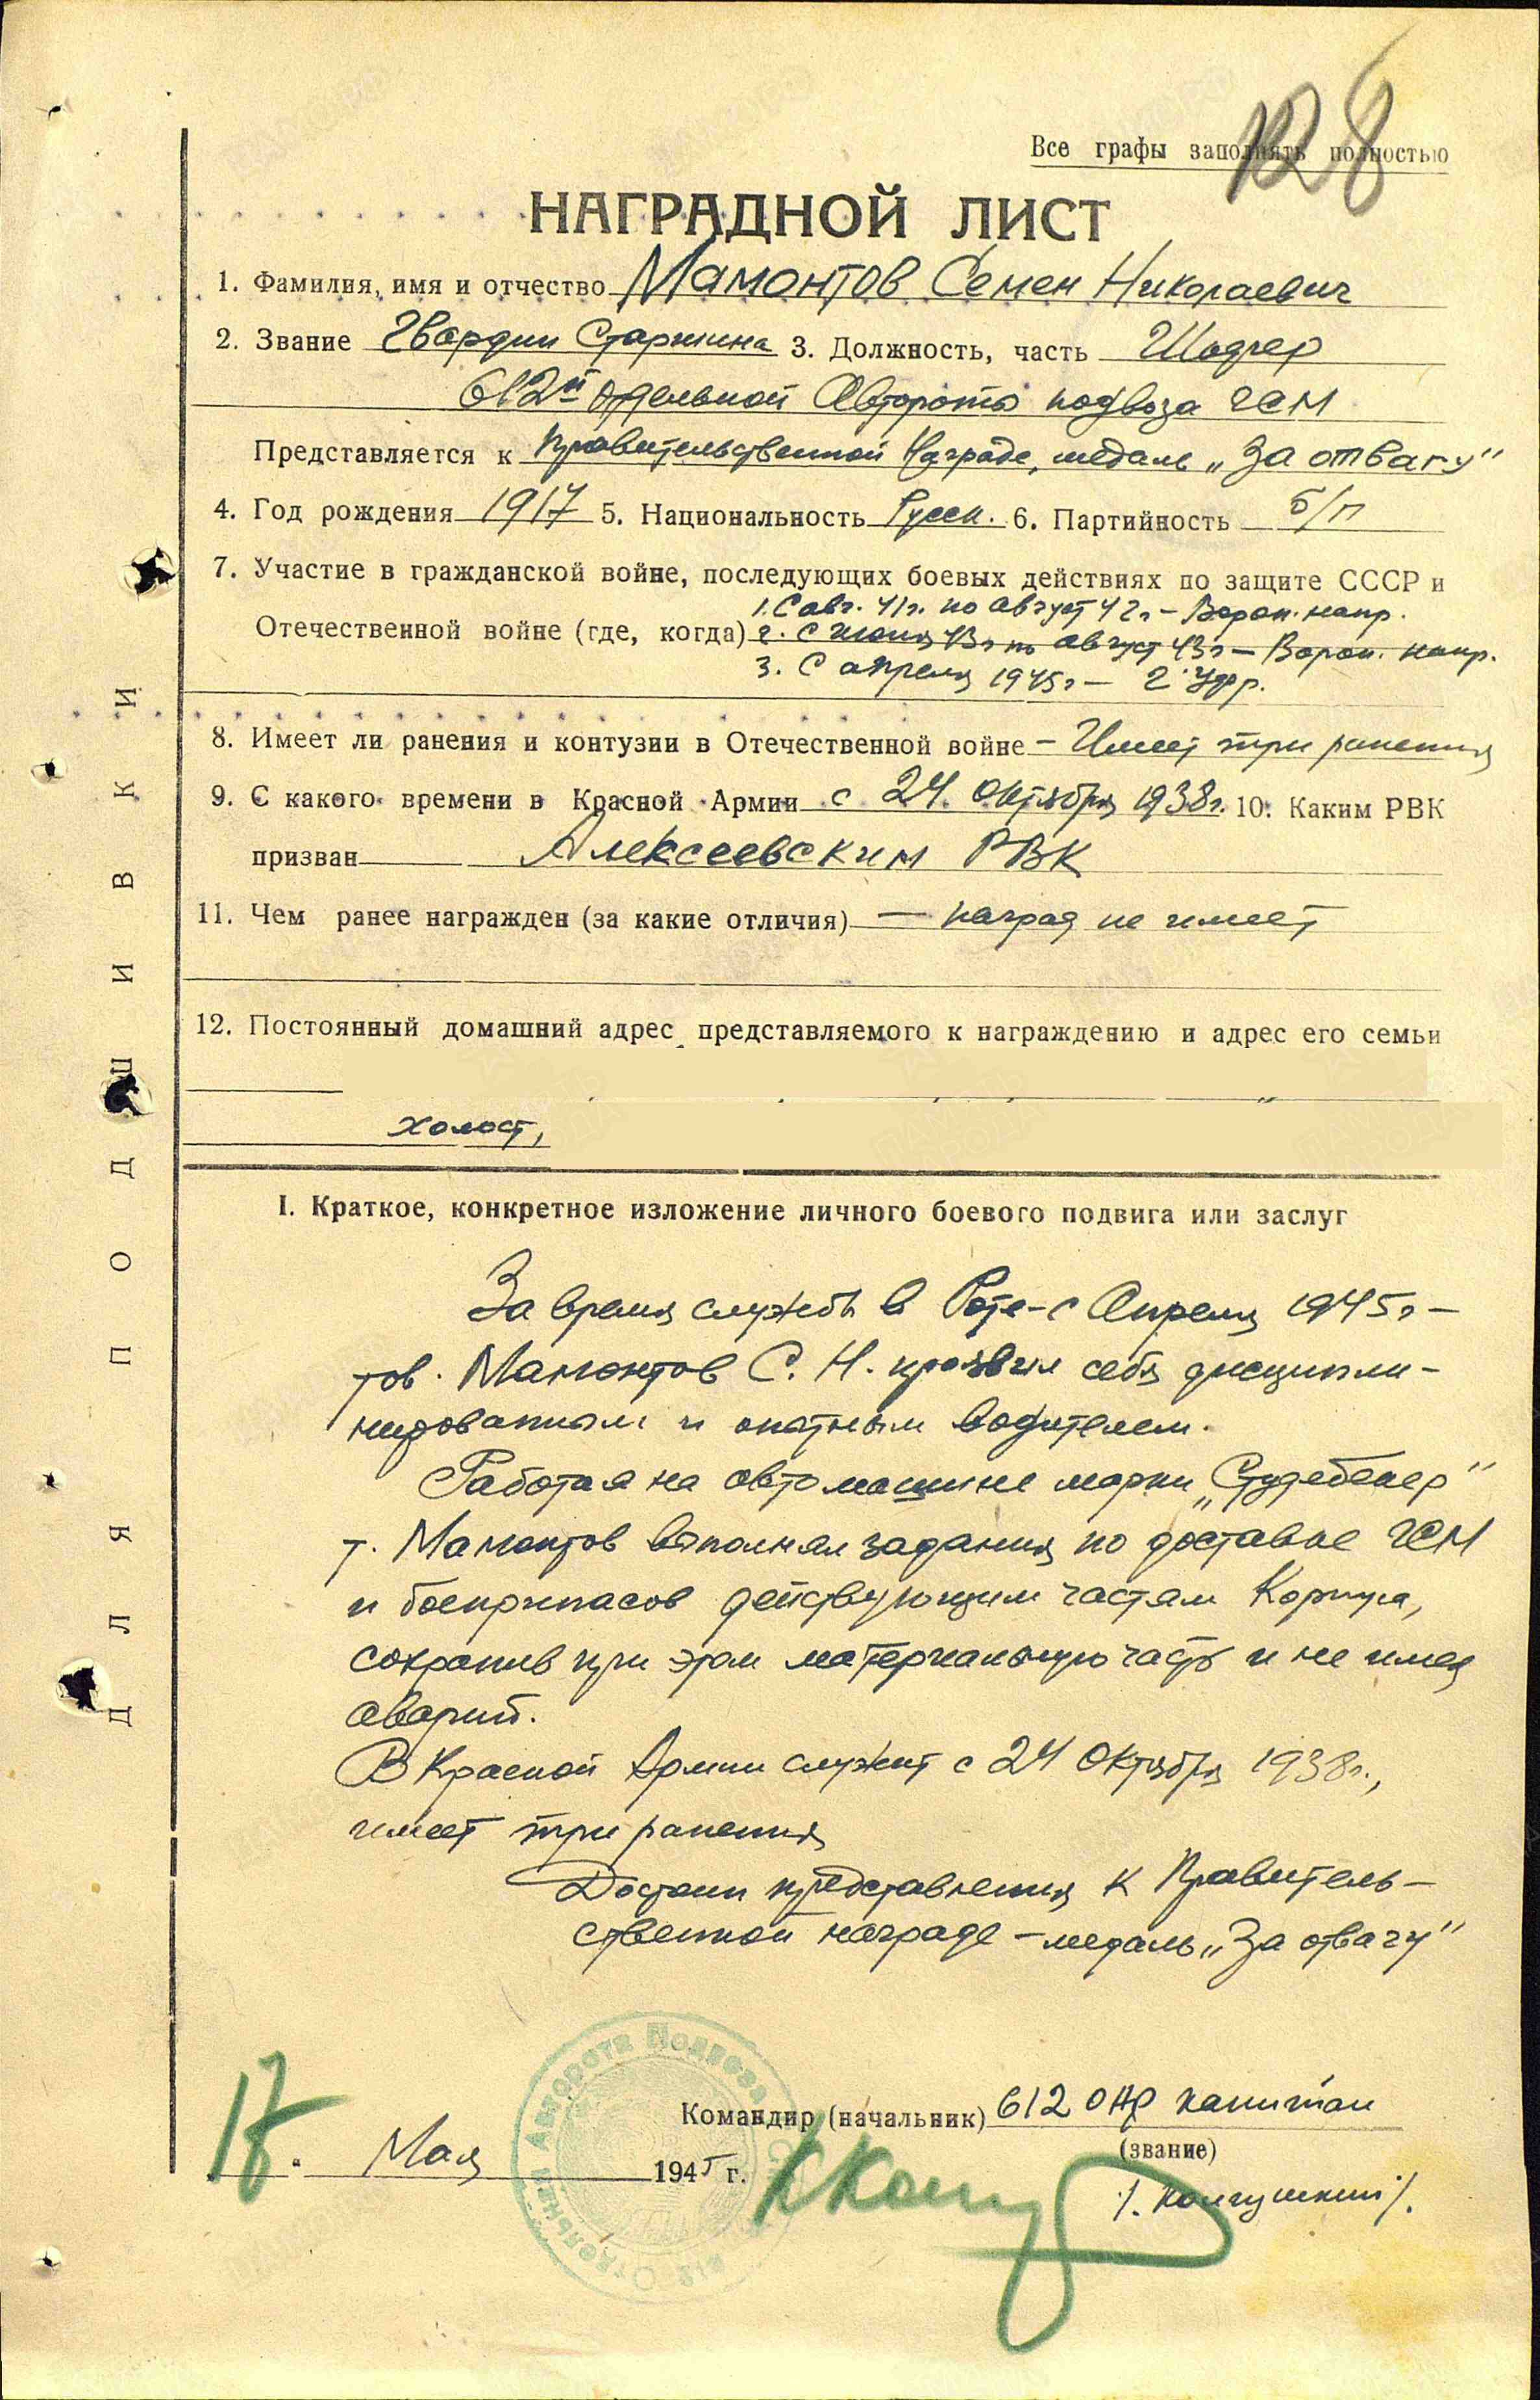 128
Все графы заполнять полностью
НАГРАДНОЙ ЛИСТ
1. Фамилия, имя и отчество Мамонтов Семен Николаевич
2. Звание Гвардии Старшина 3. Должность, часть Шофер
612й отдельной Автороты подвоза ГСМ
Представляется к Правительственной Награде, медаль „За отвагу"
4. Год рождения 1917 5. Национальность Русск. 6. Партийность б/п
7. Участие в гражданской войне, последующих боевых действиях по защите СССР и
1. С авг. 41г. по август 42г – Ворон. напр.
Отечественной войне (где, когда) 2. С июня 43г по август 43г – Ворон. напр.
3. С апреля 1945г – 2 Укр.
8. Имеет ли ранения и контузии в Отечественной войне – Имеет три ранения
9. С какого времени в Красной Армии с 24 Октября 1938г. 10. Каким РВК
призван Алексеевским РВК
11. Чем ранее награжден (за какие отличия) — наград не имеет
12. Постоянный домашний адрес представляемого к награждению и адрес его семьи
холост,
I. Краткое, конкретное изложение личного боевого подвига или заслуг
За время службы в Роте – с Апреля 1945г –
тов. Мамонтов С. Н. проявил себя дисципли-
нированным и опытным водителем.
Работая на автомашине марки „Студебекер"
т. Мамонтов выполнял задания по доставке ГСМ
и боеприпасов действующим частям Корпуса,
сохранив при этом материальную часть и не имея
аварий.
В Красной Армии служит с 24 Октября 1938г.,
имеет три ранения
Достоин представления к Правитель-
ственной награде – медаль „За отвагу"
Командир (начальник) 612 ОАР капитан
(звание)
17. Мая 1945 г.
612 Отдельная Авторота Подвоза
ДЛЯ ПОДШИВКИ